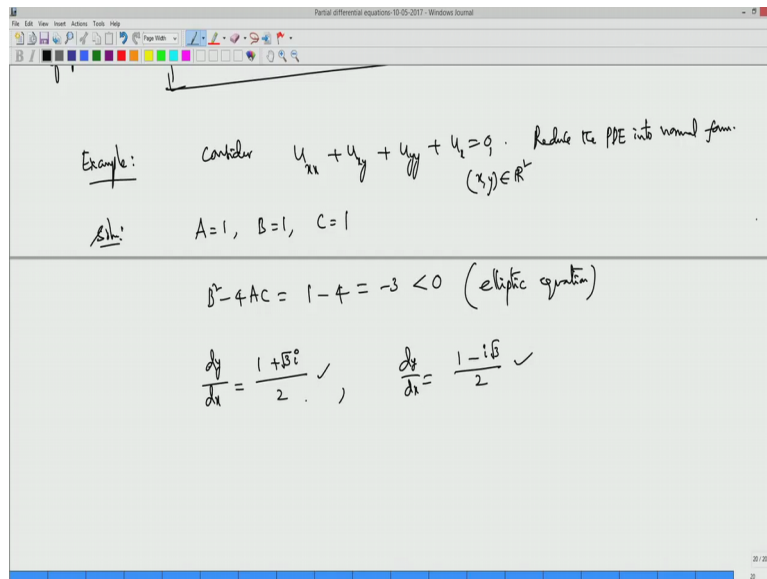 Partial differential equations-10-05-2017 - Windows Journal
File Edit View Insert Actions Tools Help
Page Width
B I
Example: Consider u_xx + u_xy + u_yy + u_x = 0, . Reduce the PDE into normal form.
(x,y) ∈ ℝ²
Soln: A=1, B=1, C=1
B²-4AC = 1-4 = -3 <0 (elliptic equation)
dy/dx = (1+√3i)/2 ✓, dy/dx = (1-i√3)/2 ✓
20 / 20
20